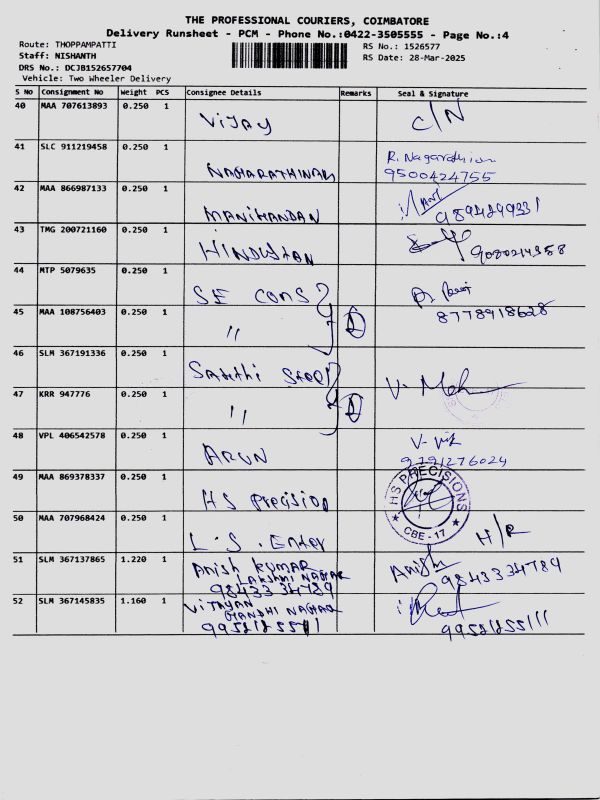 THE PROFESSIONAL COURIERS, COIMBATORE
Delivery Runsheet - PCM - Phone No.:0422-3505555 - Page No.:4
Route: THOPPAMPATTI
RS No.: 1526577
Staff: NISHANTH
RS Date: 28-Mar-2025
DRS No.: DCJB152657704
Vehicle: Two Wheeler Delivery
S No Consignment No Weight PCS Consignee Details Remarks Seal & Signature
40 MAA 707613893 0.250 1 VIJAY C/N
41 SLC 911219458 0.250 1 NAGARATHINAM R. Nagarathinam
9500424755
42 MAA 866987133 0.250 1 MANIKANDAN
43 TMG 200721160 0.250 1 HINDUSTAN
44 MTP 5079635 0.250 1 SE CONS
45 MAA 108756403 0.250 1 " 8778918628
46 SLM 367191336 0.250 1 SAKTHI
47 KRR 947776 0.250 1 "
48 VPL 406542578 0.250 1 ARUN 9791276024
49 MAA 869378337 0.250 1 HS Precision HS PRECISIONS CBE - 17
50 MAA 707968424 0.250 1 L.S. Enter H/R
51 SLM 367137865 1.220 1 Anish KUMAR Anish
LAKSHMI NAGAR 9843334789
9843334789
52 SLM 367145835 1.160 1 VIJAYAN
GANDHI NAGAR